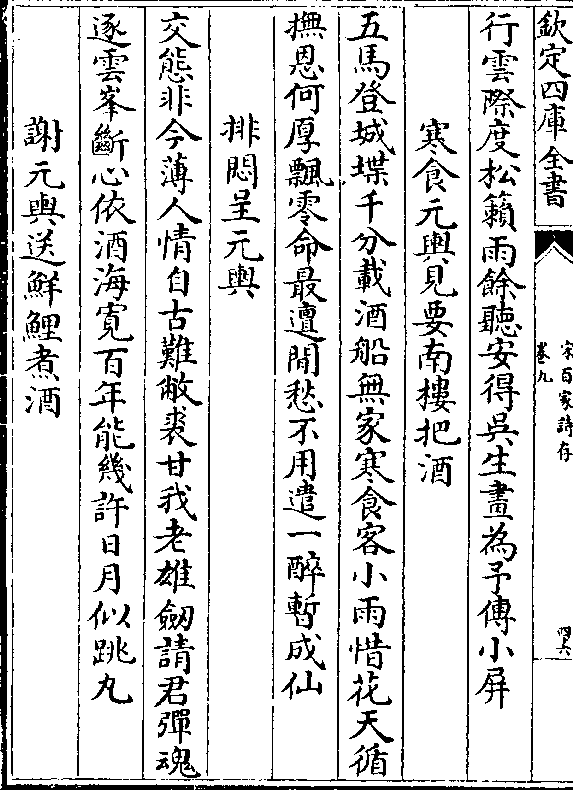 欽定四庫全書
宋百家詩存
卷九
四六
行雲際度松籟雨餘聽安得吳生畫為予傳小屏
寒食元輿見要南樓把酒
五馬登城堞千分載酒船無家寒食客小雨惜花天循
撫恩何厚飄零命最邅閒愁不用遣一醉暫成仙
排悶呈元輿
交態非今薄人情自古難敝裘甘我老雄劒請君彈魂
逐雲峯斷心依酒海寛百年能幾許日月似跳丸
謝元輿送鮮鯉煮酒